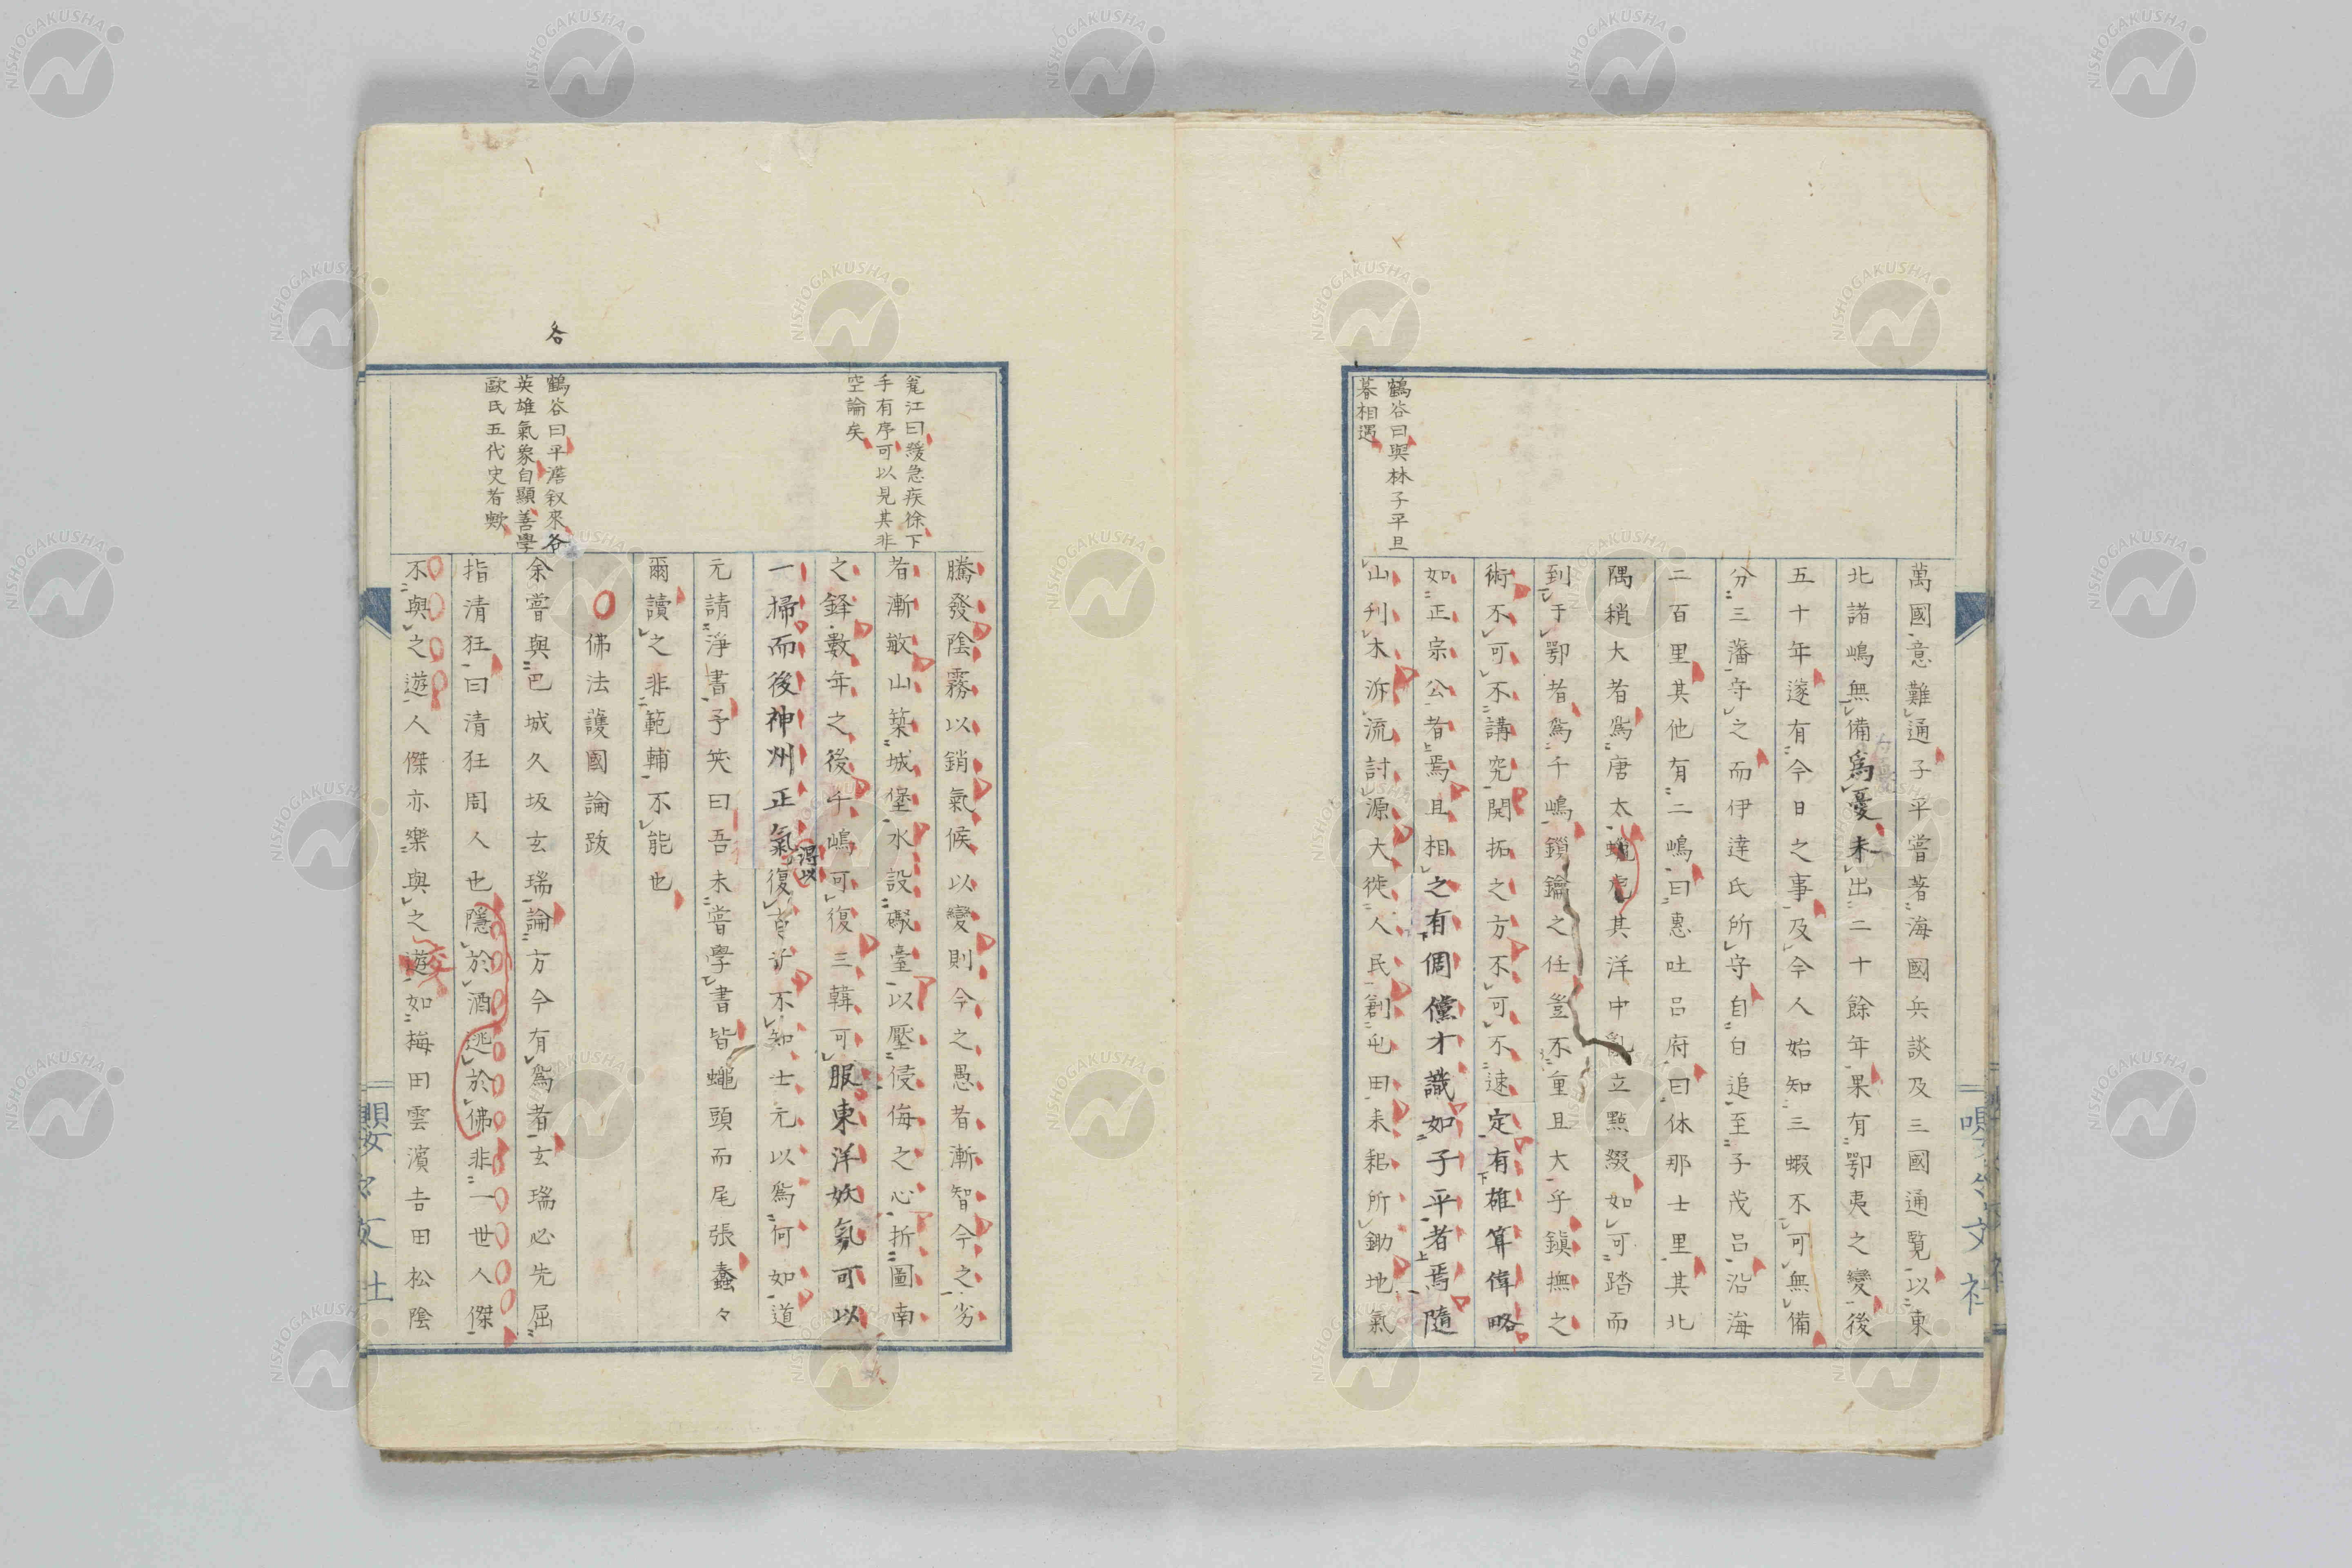 鶴谷曰與林子平旦
暮相遇
萬國意難通子平嘗著海國兵談及三國通覽以東
北諸嶋無備爲憂未出二十餘年果有鄂夷之變後
五十年遂有今日之事及今人始知三蝦不可無備
分三藩守之而伊達氏所守自白追至子茂呂沿海
二百里其他有二嶋曰惠吐呂府曰休那士里其北
隅稍大者爲唐太其洋中亂立點綴如可踏而
到于鄂者爲千嶋鎖鑰之任豈不重且大乎鎭撫之
術不可不講究開拓之方不可不速定有雄算偉略
如正宗公者焉且相之有倜儻才識如子平者焉隨
山刋木泝流討源大徙人民創屯田耒耜所鋤地氣
嚶々文社
寃江曰緩急疾徐下
手有序可以見其非
空論矣
騰發陰霧以銷氣候以變則今之愚者漸智今之劣
者漸敏山築城堡水設礮臺以壓侵侮之心折圖南
之鋒數年之後千嶋可復三韓可服東洋妖氛可以
一掃而後神州正氣得以復子不知士元以爲何如道
元請淨書予笑曰吾未嘗學書皆蠅頭而尾張蠢々
爾讀之非範輔不能也
佛法護國論跋
谷
鶴谷曰平澹叙來各
英雄氣象自顯善學
歐氏五代史者歟
余嘗與巴城久坂玄瑞論方今有爲者玄瑞必先屈
指清狂曰清狂周人也隱於酒逃於佛非一世人傑
不與之遊人傑亦樂與之遊交如梅田雲濱吉田松陰
嚶々文社
NISHOGAKUSHA